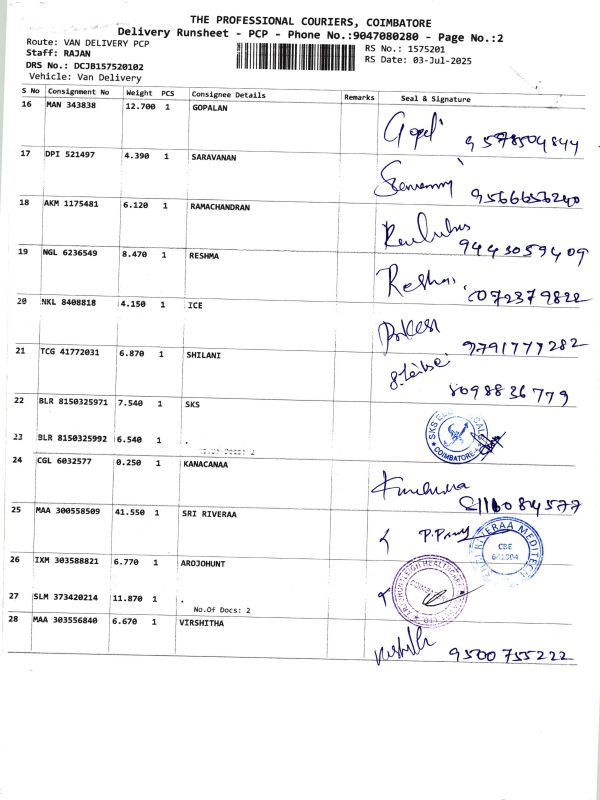 THE PROFESSIONAL COURIERS, COIMBATORE
Delivery Runsheet - PCP - Phone No.:9047080280 - Page No.:2
Route: VAN DELIVERY PCP
RS No.: 1575201
Staff: RAJAN
RS Date: 03-Jul-2025
DRS No.: DCJB157520102
Vehicle: Van Delivery
S No Consignment No Weight PCS Consignee Details Remarks Seal & Signature
16 MAN 343838 12.700 1 GOPALAN
9578504844
17 DPI 521497 4.390 1 SARAVANAN
9566656240
18 AKM 1175481 6.120 1 RAMACHANDRAN
9443059409
19 NGL 6236549 8.470 1 RESHMA
Reshma
20 NKL 8408818 4.150 1 ICE
9791777282
21 TCG 41772031 6.870 1 SHILANI
8098836779
22 BLR 8150325971 7.540 1 SKS
SKS COIMBATORE
23 BLR 8150325992 6.540 1 .
No.Of Docs: 2
24 CGL 6032577 0.250 1 KANACANAA
25 MAA 300558509 41.550 1 SRI RIVERAA
MEDITECH
CBE
641004
26 IXM 303588821 6.770 1 AROJOHUNT
HEALTHCARE
27 SLM 373420214 11.870 1 .
No.Of Docs: 2
28 MAA 303556840 6.670 1 VIRSHITHA
9500755222